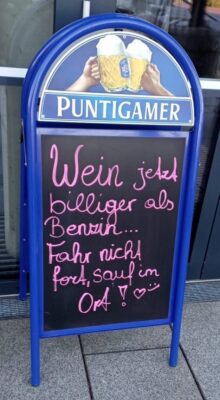 PUNTIGAMER
Wein jetzt
billiger als
Benzin...
Fahr nicht
fort, sauf im
Ort!